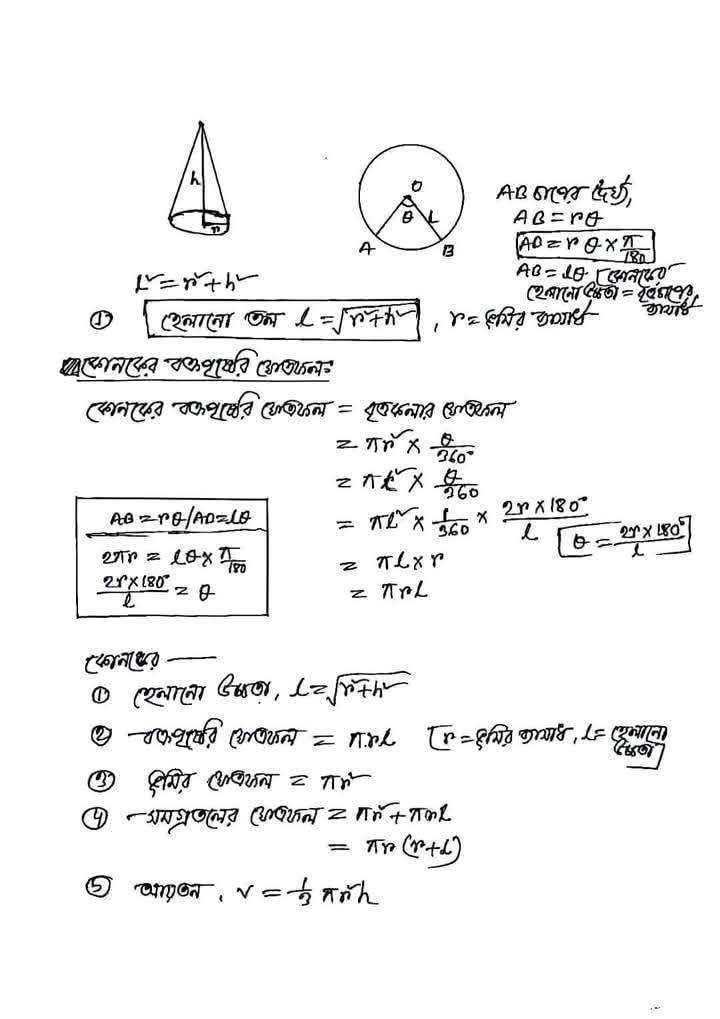 h
r
O
θ
L
A
B
AB চাপের দৈর্ঘ্য,
AB = rθ
AB = r θ × π/180
AB = lθ [কোনকের
হেলানো উচ্চতা = বৃত্তচাপের
ব্যাসার্ধ
L² = r² + h²
① হেলানো তল l = √r²+h² , r = ভূমির ব্যাসার্ধ
কোনকের বক্রপৃষ্ঠের ক্ষেত্রফল:
কোনকের বক্রপৃষ্ঠের ক্ষেত্রফল = বৃত্তকলার ক্ষেত্রফল
= πr² × θ/360°
= πl² × θ/360
= πl² × 1/360 × 2r×180°/l
θ = 2r×180°/l
= πl × r
= πrl
AB = rθ/AB = lθ
2πr = lθ × π/180
2r×180°/l = θ
কোনকের —
① হেলানো উচ্চতা, l = √r²+h²
② বক্রপৃষ্ঠের ক্ষেত্রফল = πrl [r = ভূমির ব্যাসার্ধ, l = হেলানো
উচ্চতা]
③ ভূমির ক্ষেত্রফল = πr²
④ সমগ্রতলের ক্ষেত্রফল = πr² + πrl
= πr (r+l)
⑤ আয়তন, v = 1/3 πr²h